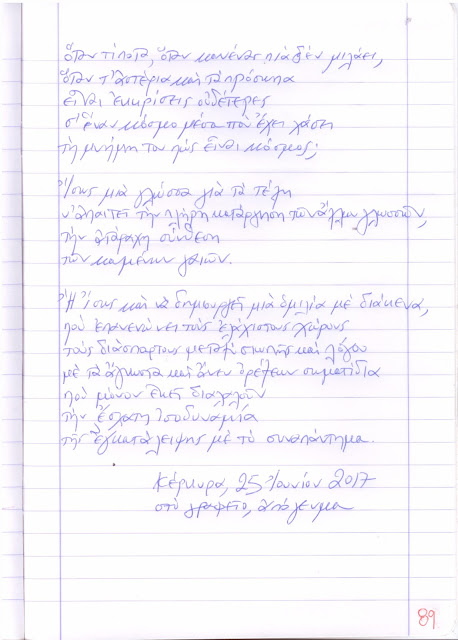 ὅταν τίποτα, ὅταν κανένας πιὰ δὲν μιλάει,
ὅταν τ’ ἀστέρια καὶ τὰ πρόσωπα
εἶναι ἐκκρίσεις οὐδέτερες
σ’ ἕναν κόσμο μέσα ποὺ ἔχει χάσει
τὴ μνήμη του πὼς εἶναι κόσμος;
Ἴσως μιὰ γλώσσα γιὰ τὰ τέλη
ν’ ἀπαιτεῖ τὴν πλήρη κατάργηση τῶν ἄλλων γλωσσῶν,
τὴν ἀτάραχη σύνθεση
τῶν καμένων γαιῶν.
Ἢ ἴσως καὶ νὰ δημιουργεῖ μιὰ ὁμιλία μὲ διάκενα,
ποὺ ἐπανενώνει τοὺς ἐλάχιστους χώρους
τοὺς διάσπαρτους μεταξὺ σιωπῆς καὶ λόγου
μὲ τὰ ἄγνωστα καὶ ἄνευ ὀρέξεων σωματίδια
ποὺ μόνον ἐκεῖ διαλαλοῦν
τὴν ἔσχατη ἰσοδυναμία
τῆς ἐγκατάλειψης μὲ τὸ συναπάντημα.
Κέρκυρα, 25 Ἰουνίου 2017
στὸ γραφεῖο, ἀπόγευμα
89